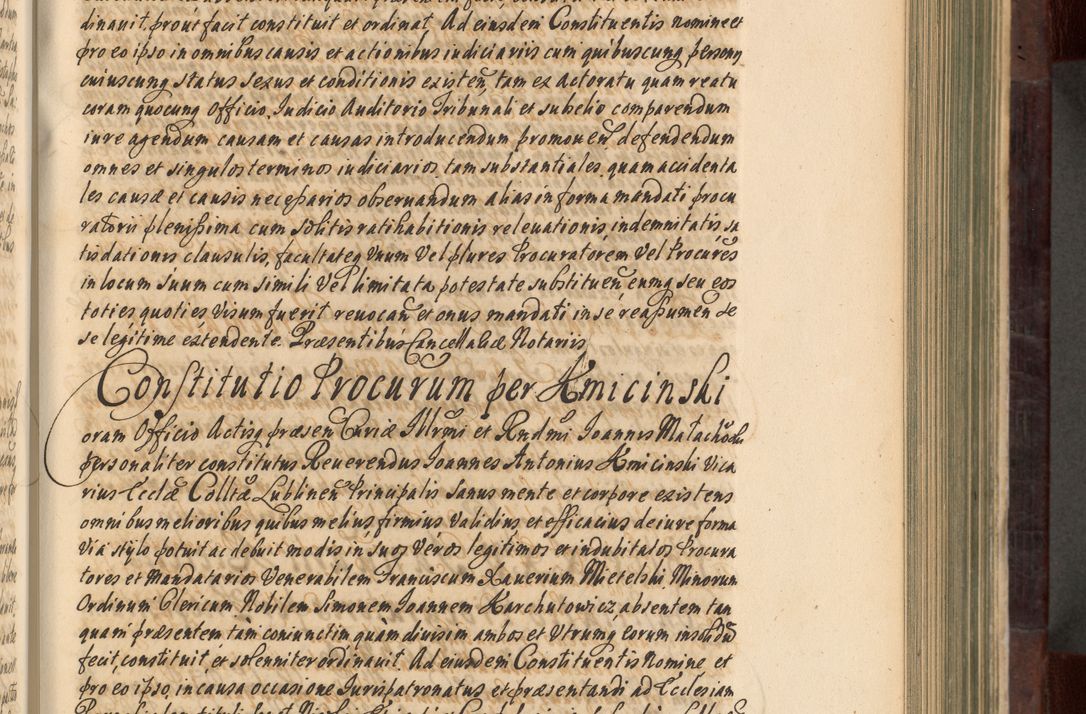 dinauit, prout facit constituit et ordinat. Ad eiusdem Constituentis nomine et
pro eo ipso in omnibus causis et actionibus iudiciariis cum quibuscunq personis
cuiuscunq status sexus et conditionis existen̄, tam ex Actoratu quam reatu
coram quocunq Officio, Iudicio Auditorio Tribunali et subselio comparendum
iure agendum causam et causas introducendum promouen̄ defendendum
omnes et singulos terminos iudiciarios, tam substantiales, quam accidenta
les causæ et causis necessarios obseruandum alias in forma mandati procu
ratorii plenissima cum solitis ratihabitionis releuationis, indemnitatis sa
tisdationis clausulis, facultateq Vnum Vel plures Procuratorem Vel Procures
in locum suum cum simili Vel limitata potestate substituen̄, eumq seu eos
toties quoties Visum fuerit reuocan̄ et onus mandati in se reassumen̄ de
se legitime extendente. Præsentibus Cancellariæ Notariis
Constitutio Procurum per Kmicinski
oram Officio Actisq præsen Curiæ Illrmi et Rndmi Ioannis Malachoski
personaliter constitutus Reuerendus Ioannes Antonius Kmicinski Vica
rius Ecclæ Colltæ Lublinen̄ Principalis Sanus mente et corpore existens
omnibus melioribus quibus melius firmius Validius et efficacius de iure forma
Via stylo potuit ac debuit modis in suos Veros legitimos et indubitatos Procura
tores et Mandatarios Venerabilem Franciscum Xauerium Mietelski Minorum
Ordinum Clericum Nobilem Simonem Ioannem Karchutowicz, absentem tan
quam præsentem tàm coniunctim quàm diuisim ambos et Vtrumq eorum in solidū
fecit, constituit, et solenniter ordinauit. Ad eiusdem Constituentis Nomine et
pro eo ipso, in causa occasione Iurispatronatus et præsentandi ad Ecclesiam